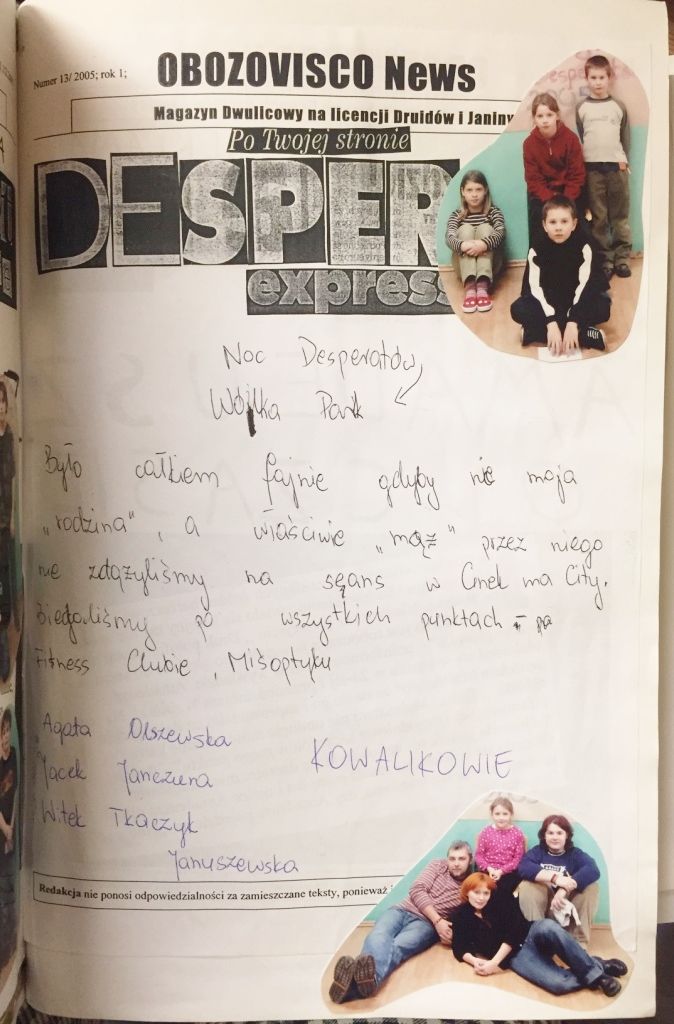 Numer 13/ 2005; rok 1;
OBOZOVISCO News
Magazyn Dwulicowy na licencji Druidów i Janiny
Po Twojej stronie
DESPER
express
Noc Desperatów
Wójka Park
Było całkiem fajnie gdyby nie moja
„rodzina", a właściwie „mąż" przez niego
nie zdążyliśmy na seans w Cinek ma City.
Biegaliśmy po wszystkich punktach - po
Fitness Clubie, Misoptyku
Agata Olszewska
KOWALIKOWIE
Jacek Janczura
Witek Tkaczyk
Januszewska
Redakcja nie ponosi odpowiedzialności za zamieszczane teksty, ponieważ